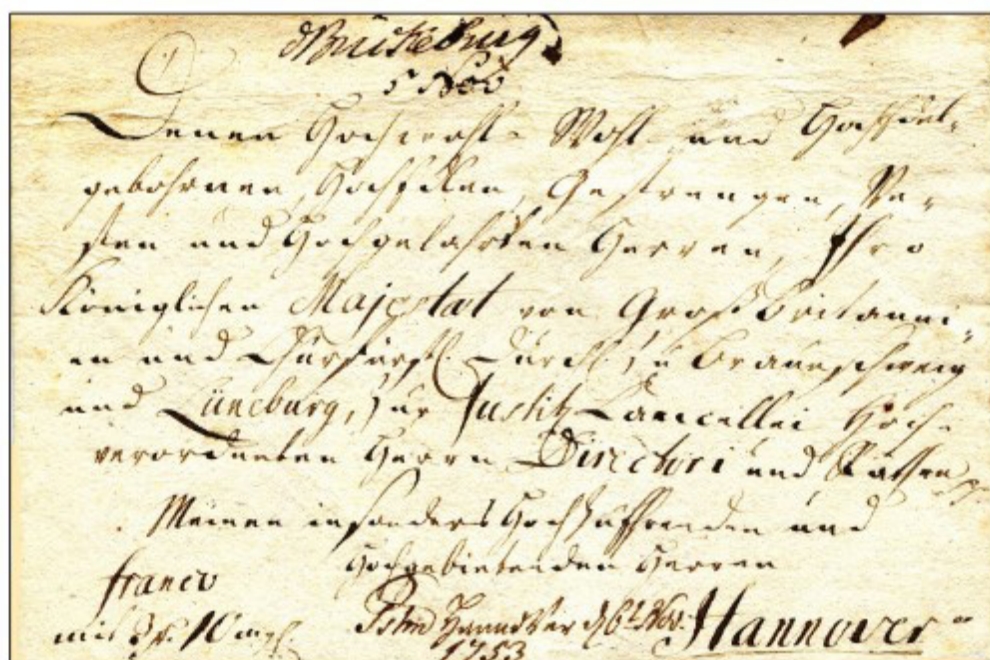 dBückeburg
5 Nov
Denen Hochwohl- Wohl- und Hochedel-
gebohrnen, Hochedlen, Gestrengen, Ve-
sten und Hochgelahrten Herren, Ihro
Königlichen Majestät von Großbritanni-
en und Churfürstl. Durchl. zu Braunschweig
und Lüneburg, zur Justitz Cancellei Hoch-
verordneten Herrn Directori und Räthen
Meinen insonders HochzuEhrenden und
Hochgebietenden Herren
franco
Hannover d 6t Nov. Hannover
1753